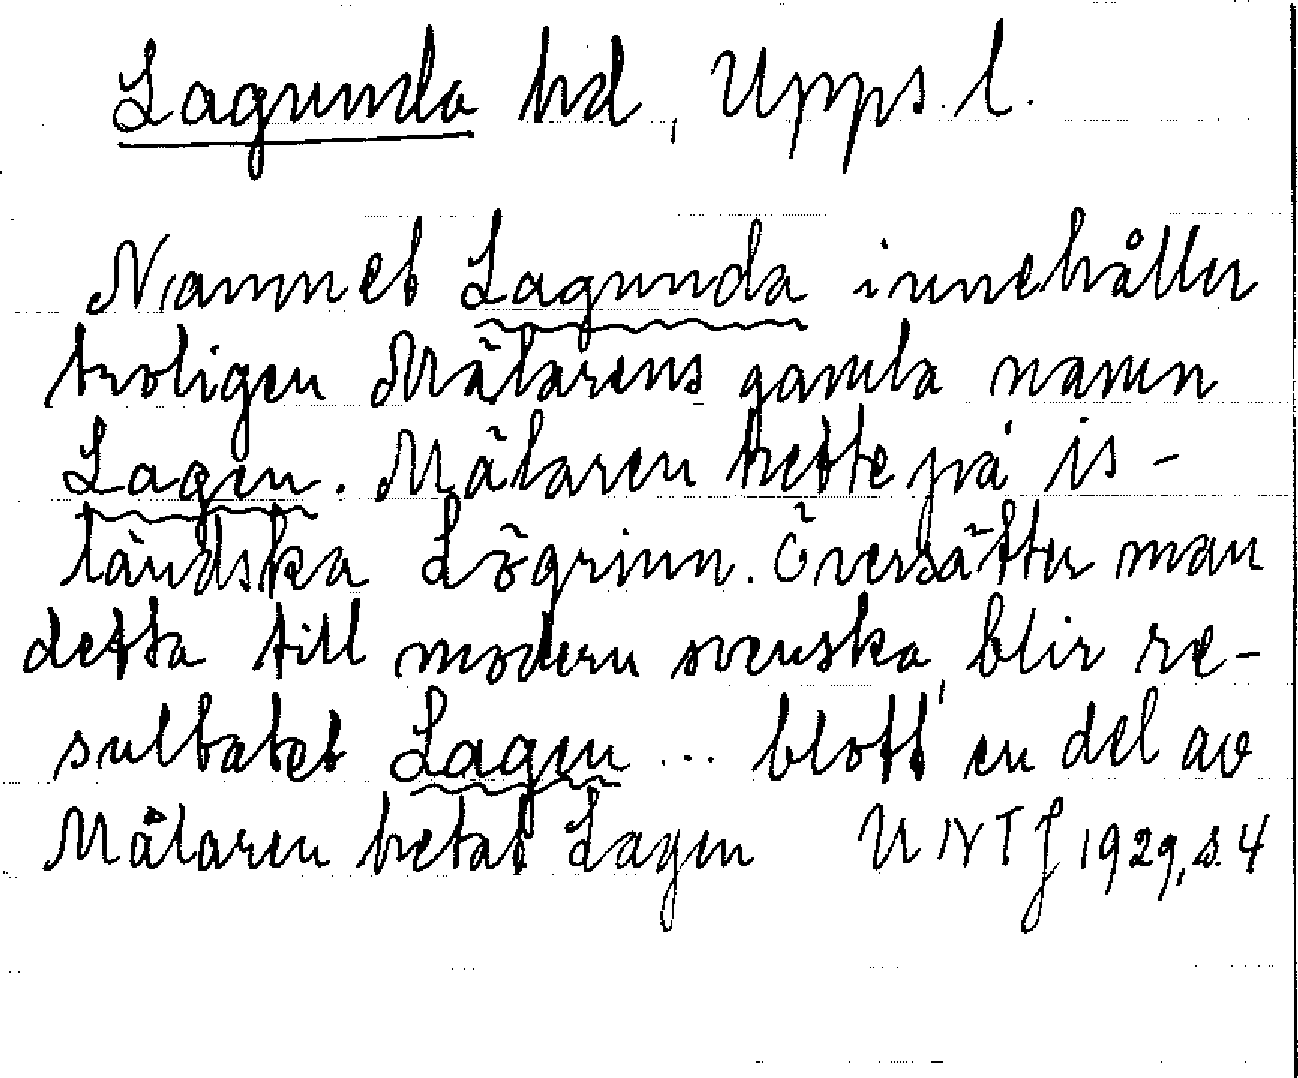 Lagunda hd, Upps. l.
Namnet Lagunda innehåller
troligen Mälarens gamla namn
Lagen. Mälaren hette på is-
ländska Lögrinn. Översätter man
detta till modern svenska, blir re-
sultatet Lagen ... blott en del av
Mälaren hetat Lagen UNT J 1929, s. 4